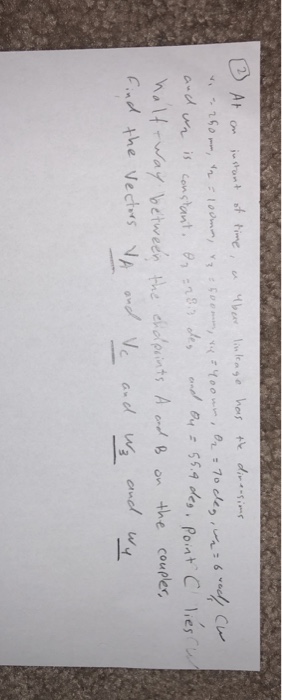 ② At an instant of time, a 4bar linkage has the dimensions
r₁ = 250mm, r₂ = 100mm, r₃ = 500mm, r₄ = 400mm, θ₂ = 70 deg, ω₂ = 6 rad/ CW
and ω₂ is constant. θ₃ = 28.3 deg and θ₄ = 55.9 deg. Point C lies
half-way between the endpoints A and B on the coupler.
Find the Vectors VA and Vc and W3 and W4